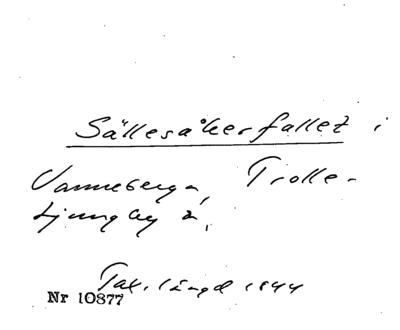 Sällesåkerfallet i
Vanneberga, Trolle-
Ljungby s.
Tax. längd 1944
Nr 10877